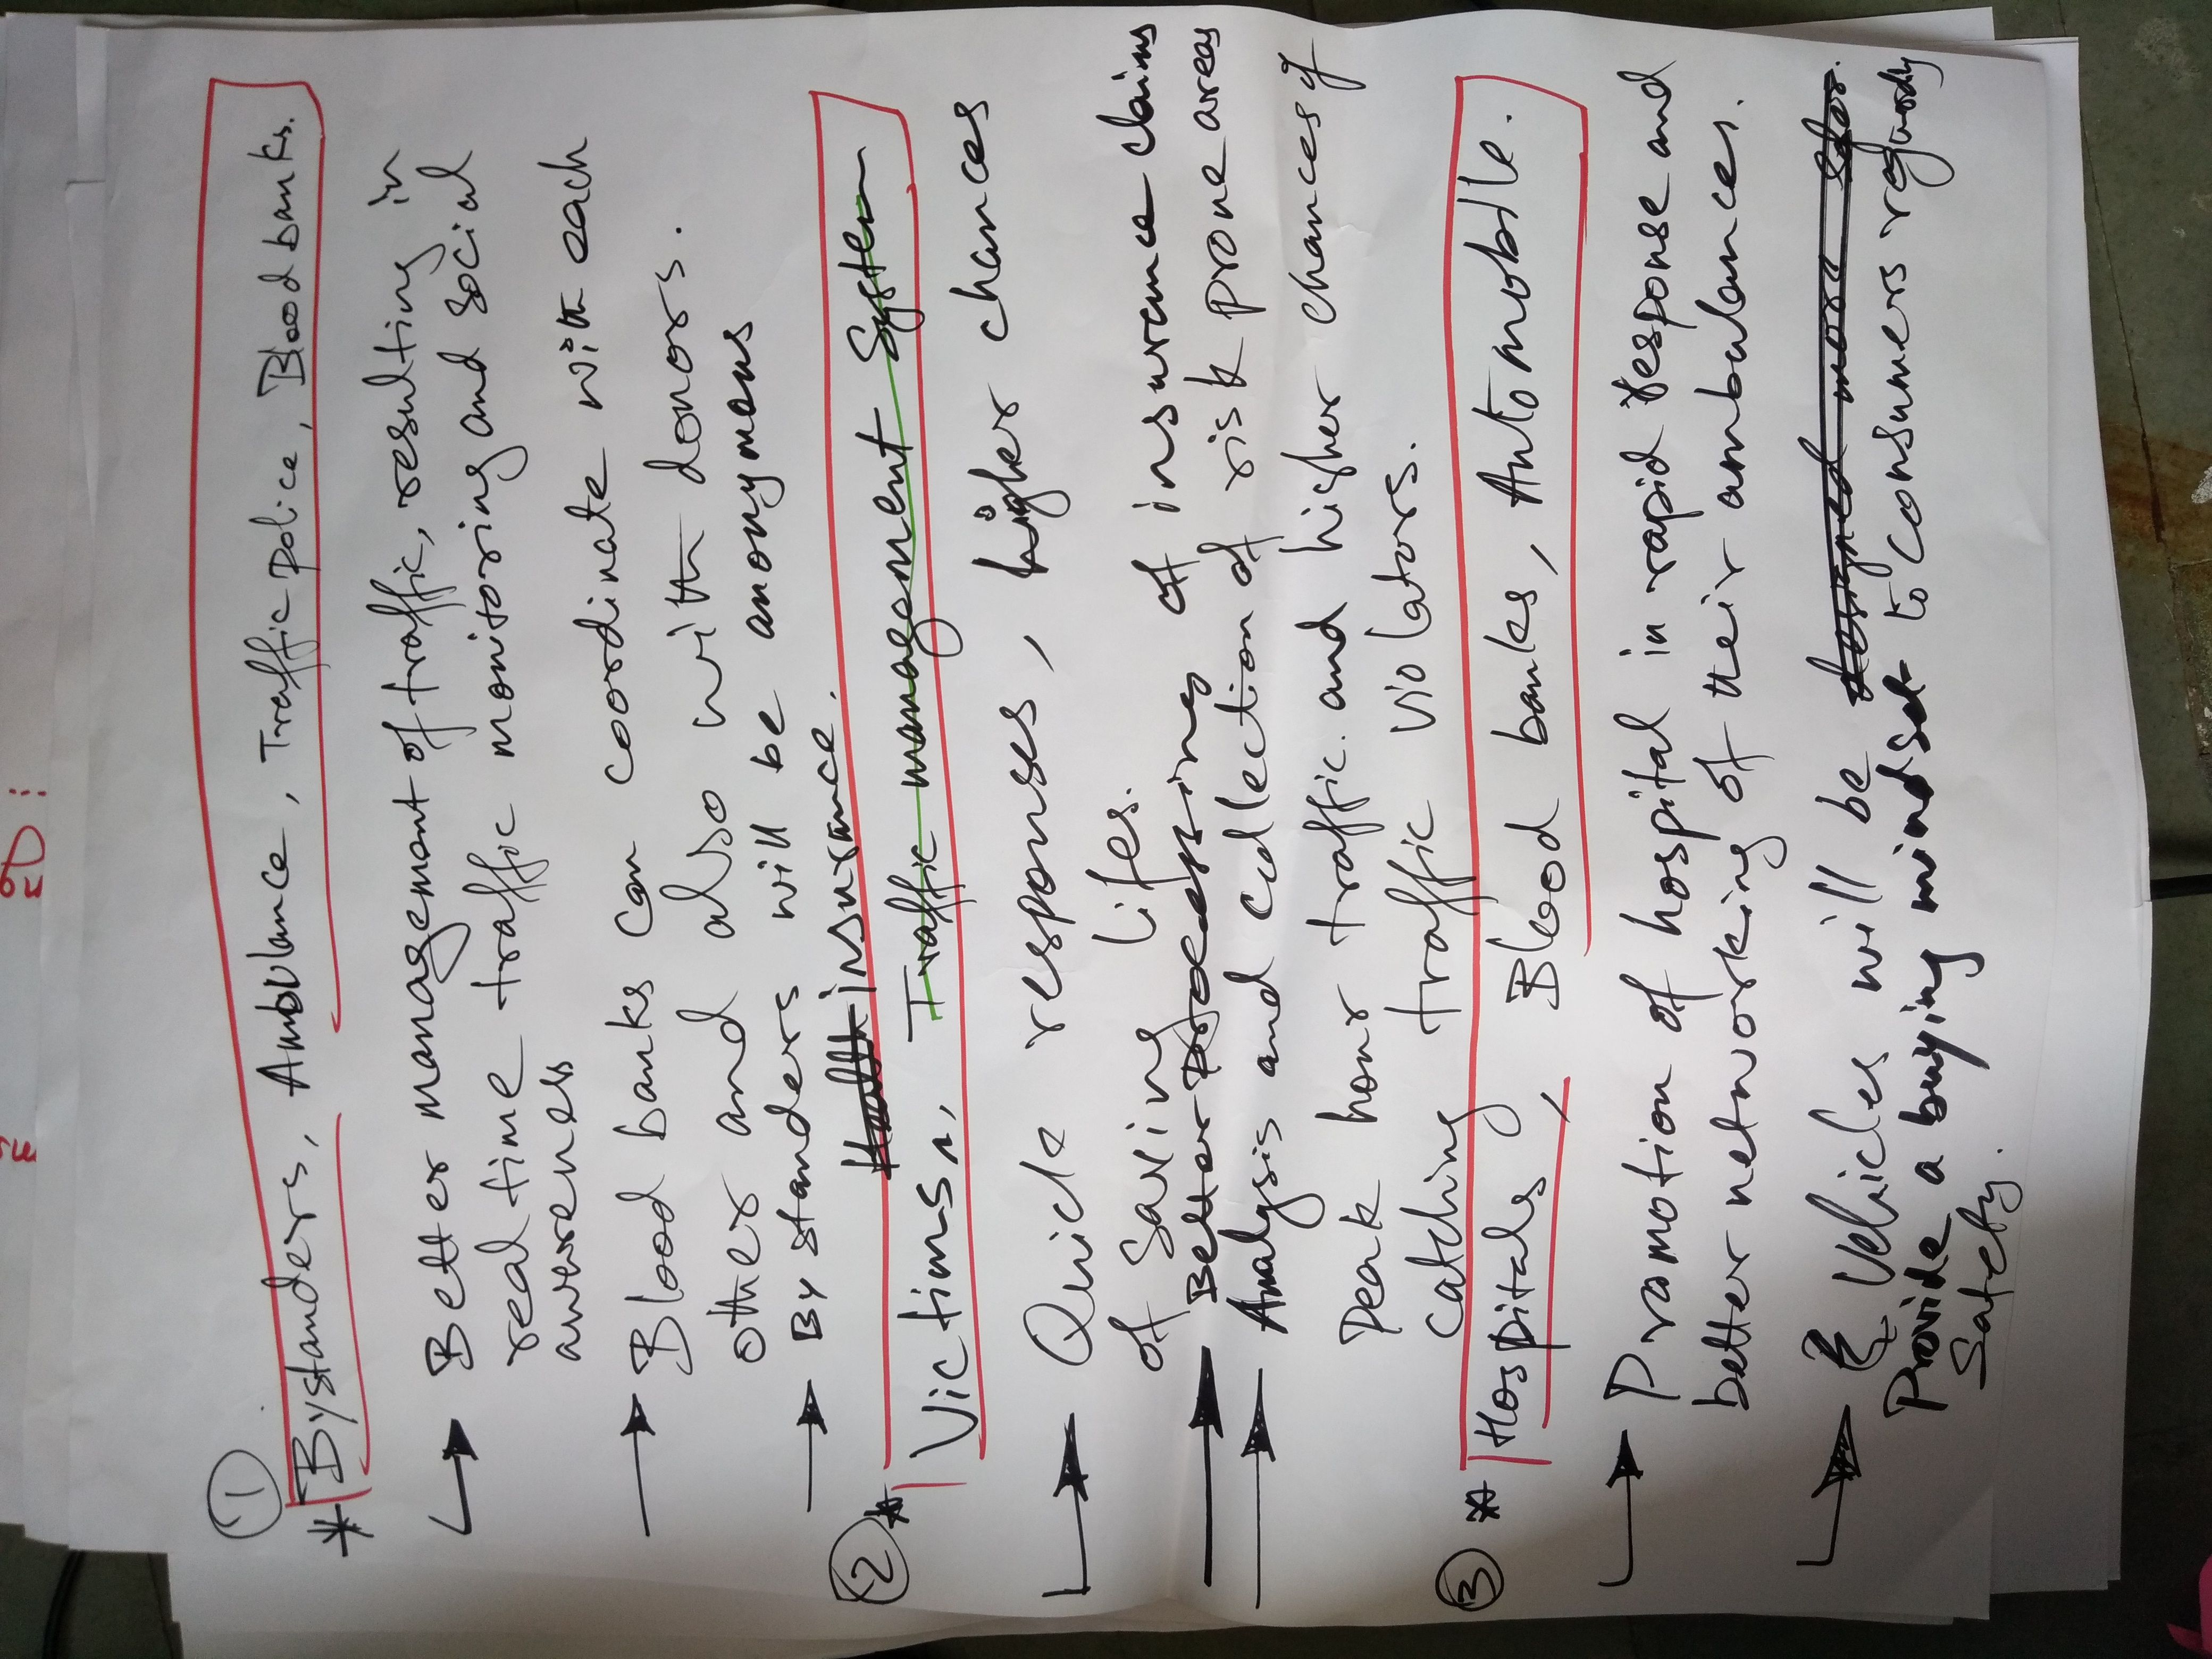 ①
* Bystanders, Ambulance, Traffic police, Blood banks.
Better management of traffic, resulting in
real time traffic monitoring and social
awareness
Blood banks can coordinate with each
other and also with donors.
By standers will be anonymous
insurance.
② * Victims, Traffic management System
Quick responses, higher chances
of saving lifes.
Better processing of insurance claims
Analysis and collection of risk prone areas
Peak hour traffic and higher chances of
catching traffic violators.
③ * Hospitals, Blood banks, Automobile.
Promotion of hospital in rapid response and
better networking of their ambulances.
Vehicles will be
Provide a buying mindset to consumers regardly
Safety.